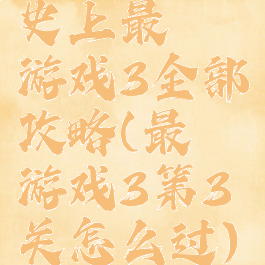 史上最
游戏3全部
攻略(最
游戏3第3
关怎么过)